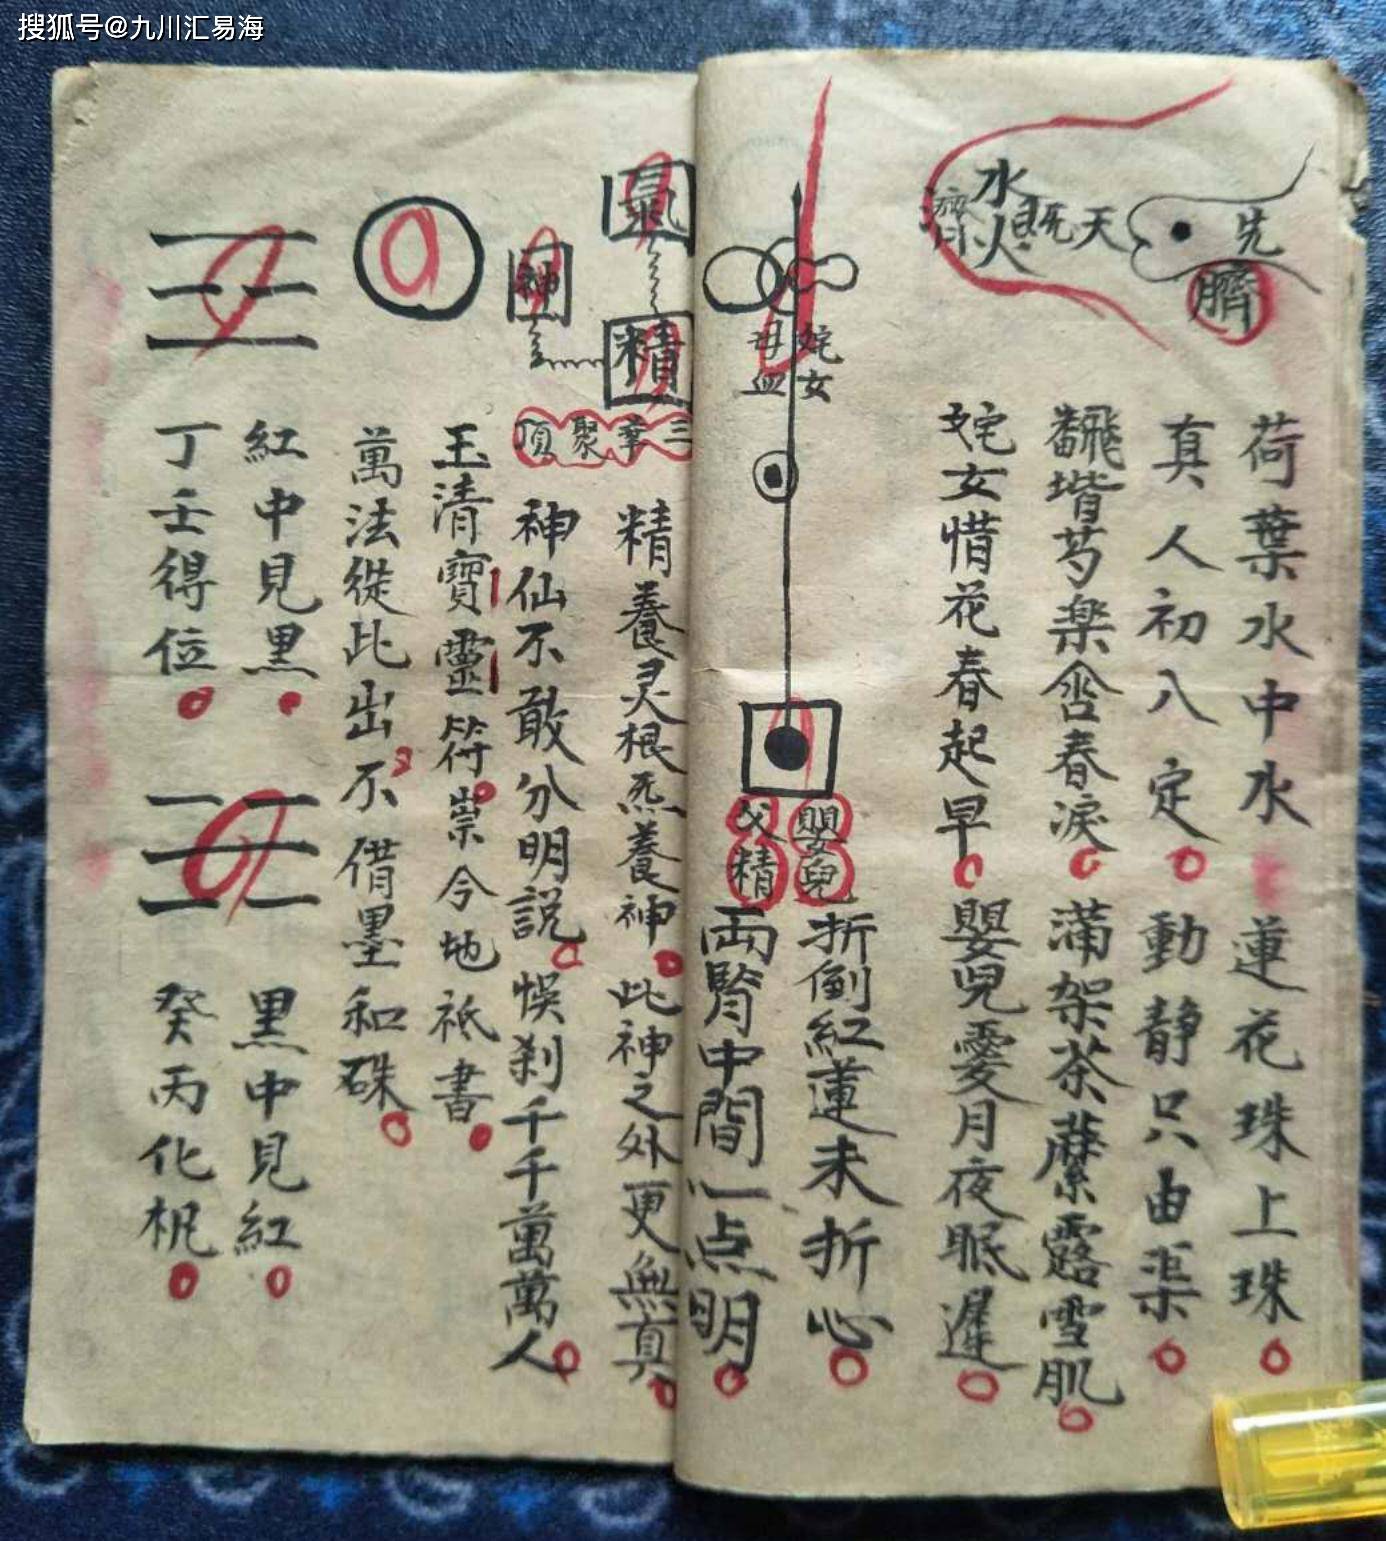 搜狐号@九川汇易海
先
天
既
水火
濟
臍
荷葉水中水 蓮花珠上珠
真人初八定 動静只由渠
翻堦芍薬含春淚 滿架荼蘼露雪肌
姹女惜花春起早 嬰兒愛月夜眠遲
姹女
母血
嬰兒
父精
折倒紅蓮未折心
両腎中間一点明
氣
精
神
三峯聚頂
精養灵根炁養神 此神之外更無真
神仙不敢分明説 悞刹千千萬萬人
玉清寶靈符 崇今地祇書
萬法從此出 不借墨和硃
紅中見黒
丁壬得位
黒中見紅
癸丙化机